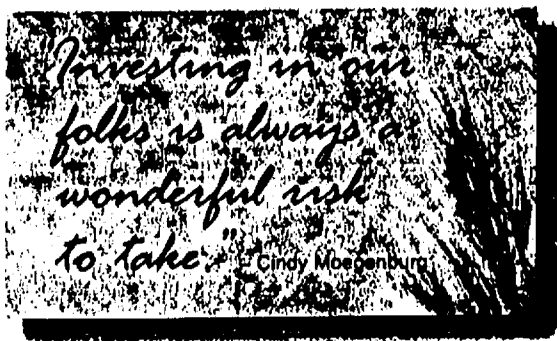 "Investing in our
folks is always a
wonderful risk
to take." – Cindy Moegenburg